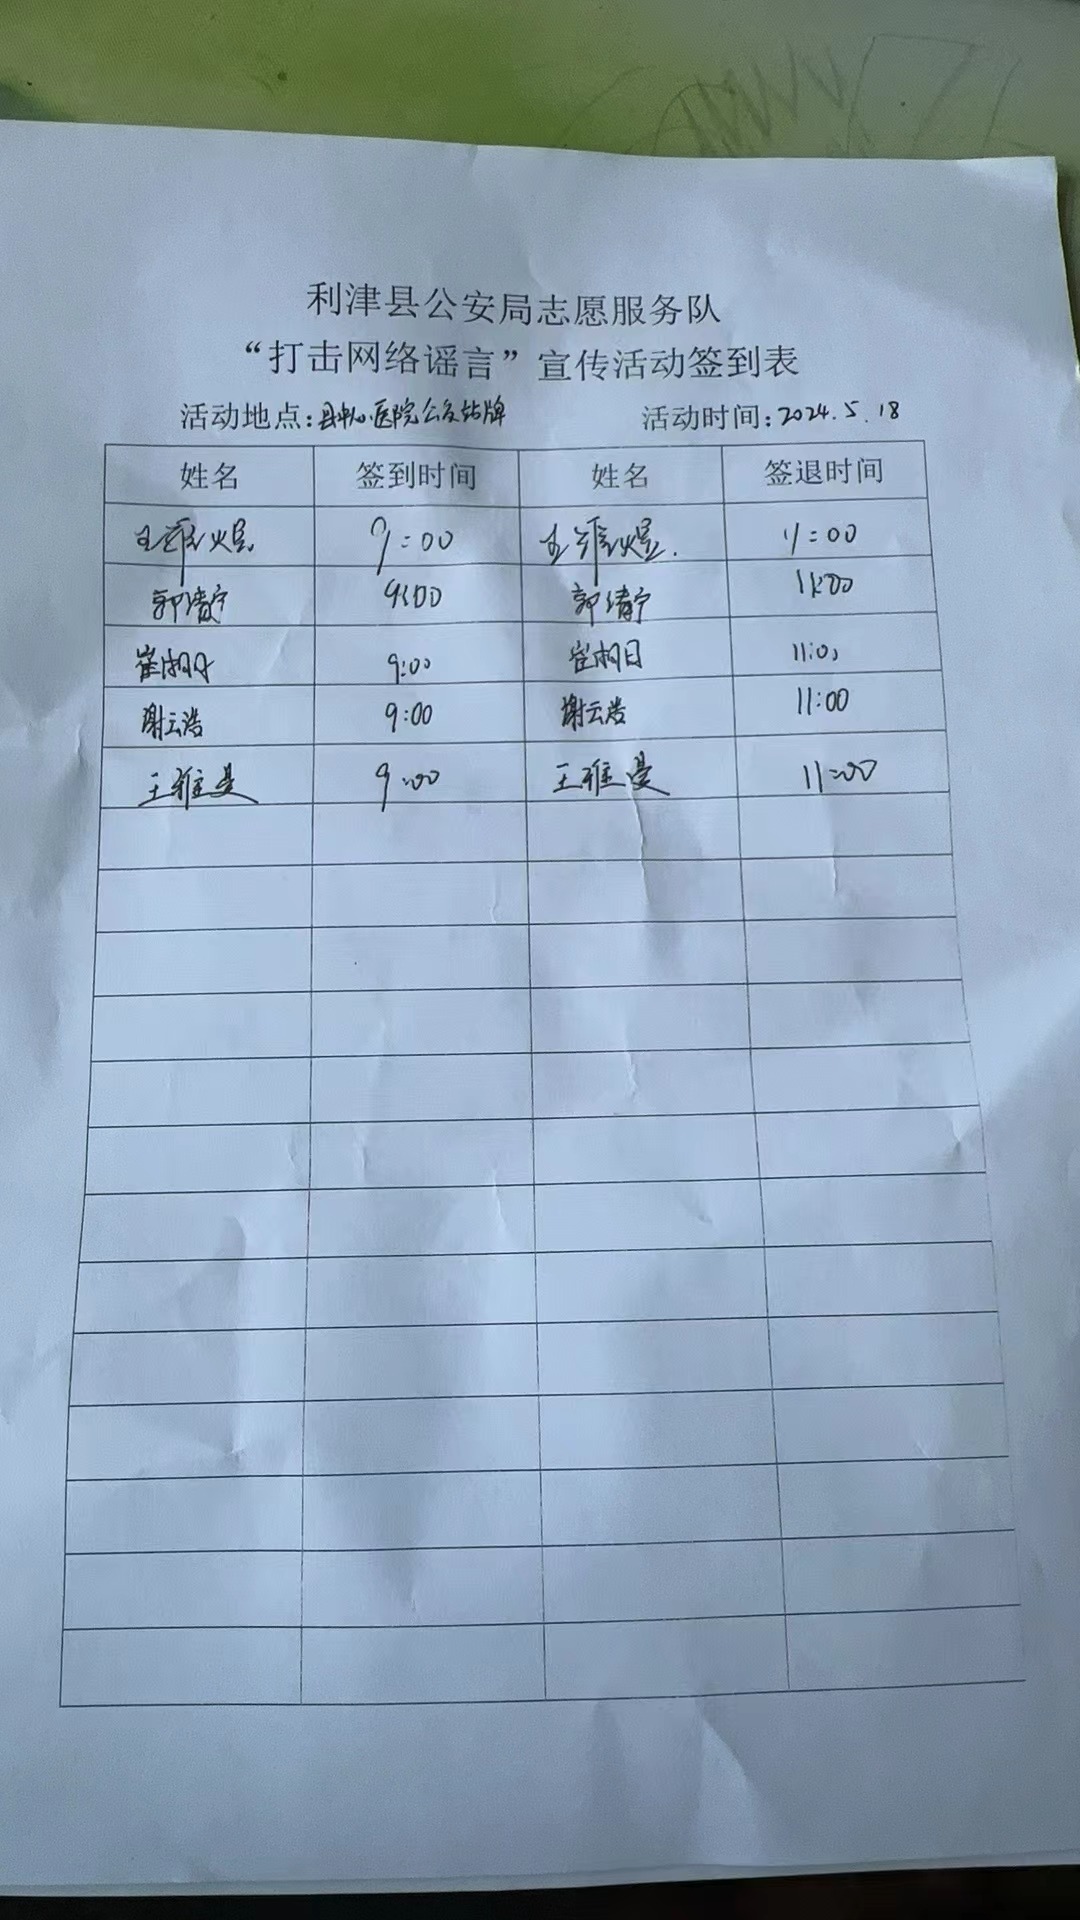 利津县公安局志愿服务队
“打击网络谣言”宣传活动签到表
活动地点:县中心医院公交站牌 活动时间:2024.5.18
姓名 签到时间 姓名 签退时间
王雅煜 9:00 王雅煜. 11:00
郭清宁 9:00 郭清宁 11:00
崔湘日 9:00 崔湘日 11:00
谢云浩 9:00 谢云浩 11:00
王雅曼 9:00 王雅曼 11:00